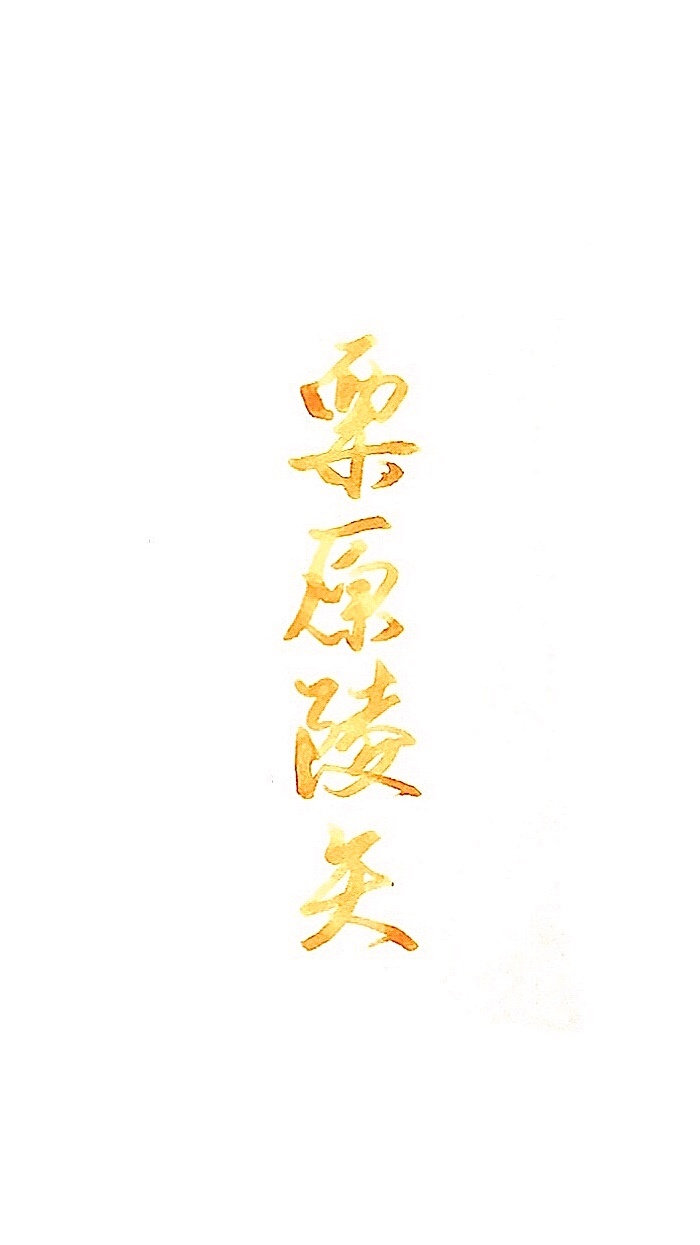 栗原陵矢